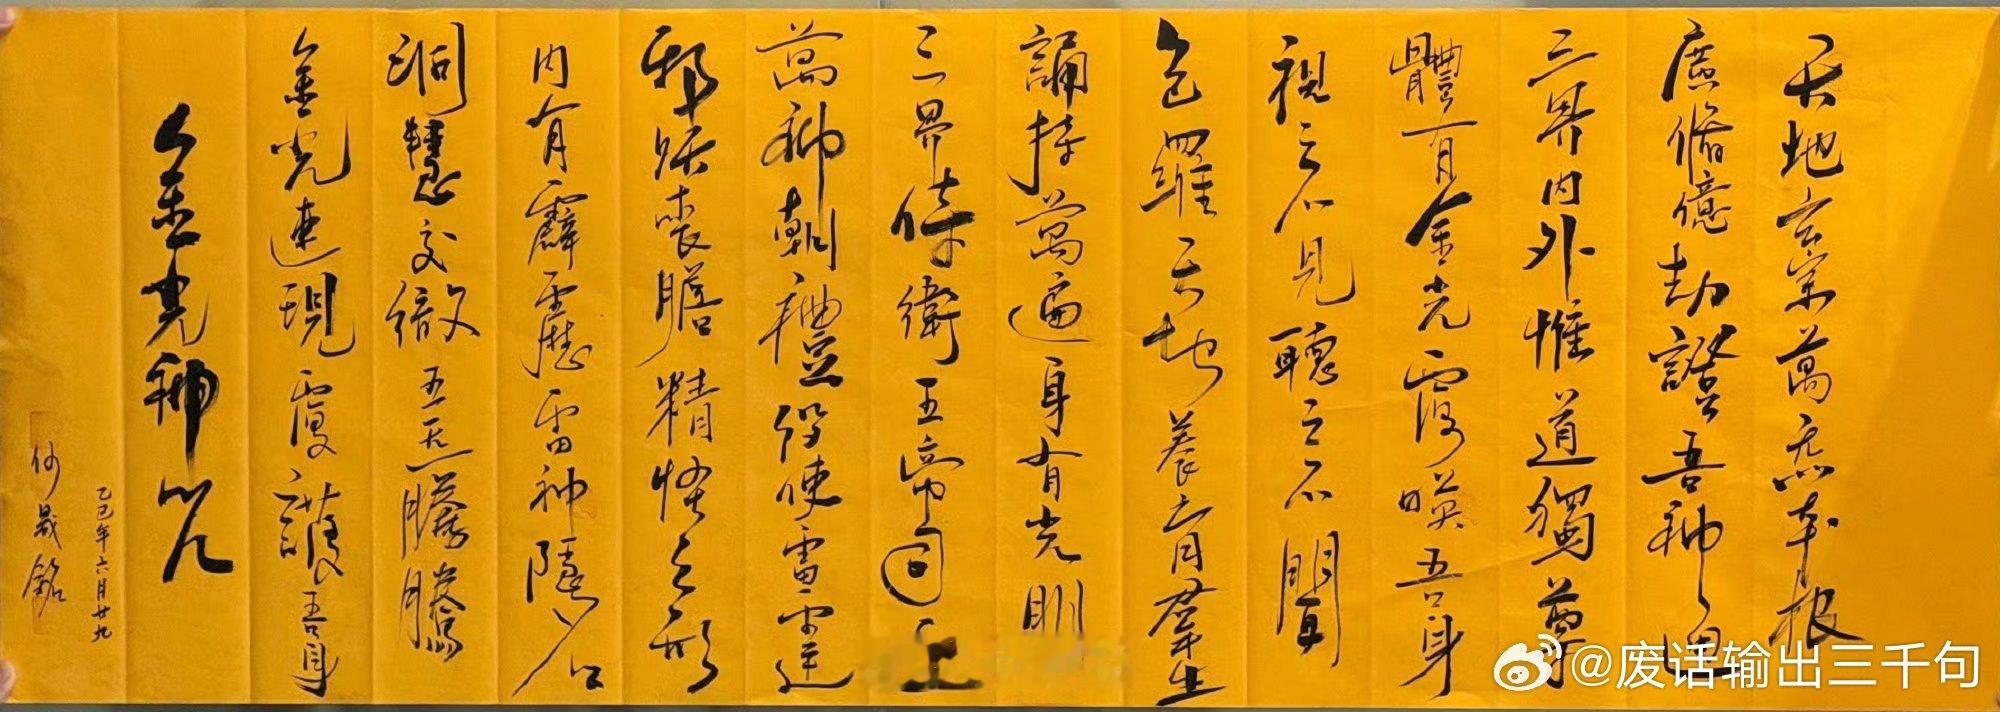 天地玄宗萬炁本根
廣脩億劫證吾神通
三界内外惟道獨尊
體有金光覆暎吾身
視之不見聽之不聞
包羅天地養育羣生
誦持萬遍身有光明
三界侍衛五帝司
萬神朝禮役使雷霆
邪妖喪膽精怪亡形
内有霹靂雷神隱名
洞慧交徹五炁騰騰
金光速現覆護吾身
金光神咒
乙巳年六月廿九
何晟銘
@废话输出三千句